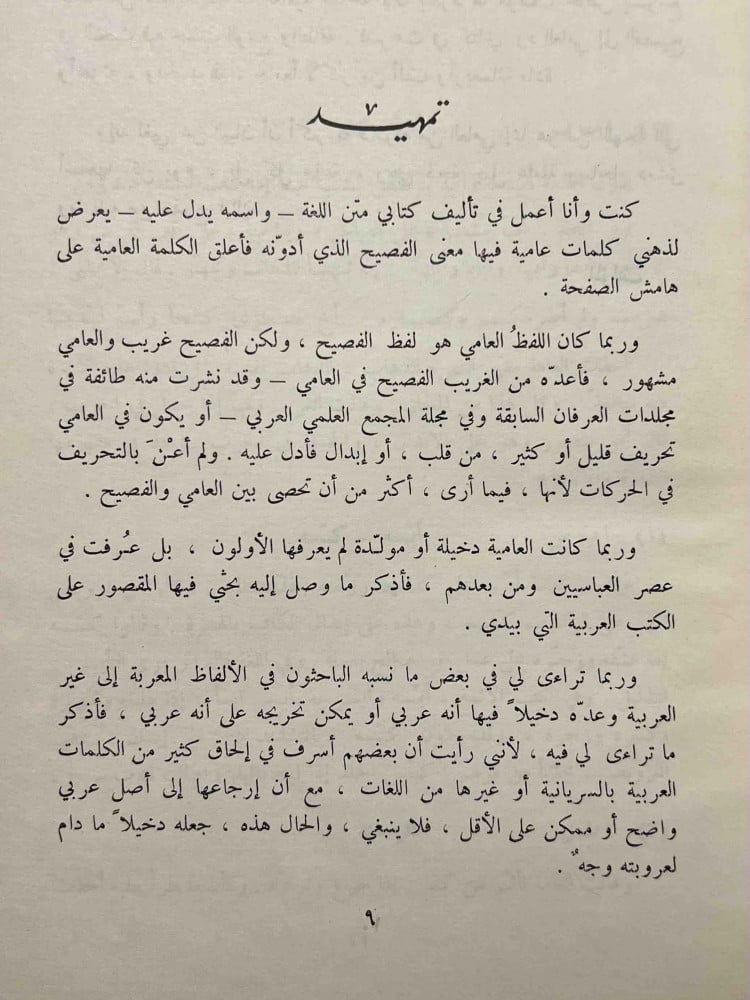 تمهيد
كنت وأنا أعمل في تأليف كتابي متن اللغة – واسمه يدل عليه – يعرض
لذهني كلمات عامية فيها معنى الفصيح الذي أدوّنه فأعلق الكلمة العامية على
هامش الصفحة .
وربما كان اللفظُ العامي هو لفظ الفصيح ، ولكن الفصيح غريب والعامي
مشهور ، فأعدّه من الغريب الفصيح في العامي – وقد نشرت منه طائفة في
مجلدات العرفان السابقة وفي مجلة المجمع العلمي العربي – أو يكون في العامي
تحريف قليل أو كثير ، من قلب ، أو إبدال فأدل عليه . ولم أعْنَ بالتحريف
في الحركات لأنها ، فيما أرى ، أكثر من أن تحصى بين العامي والفصيح .
وربما كانت العامية دخيلة أو مولّدة لم يعرفها الأولون ، بل عُرفت في
عصر العباسيين ومن بعدهم ، فأذكر ما وصل إليه بحثي فيها المقصور على
الكتب العربية التي بيدي .
وربما تراءى لي في بعض ما نسبه الباحثون في الألفاظ المعربة إلى غير
العربية وعدّه دخيلاً فيها أنه عربي أو يمكن تخريجه على أنه عربي ، فأذكر
ما تراءى لي فيه ، لأنني رأيت أن بعضهم أسرف في إلحاق كثير من الكلمات
العربية بالسريانية أو غيرها من اللغات ، مع أن إرجاعها إلى أصل عربي
واضح أو ممكن على الأقل ، فلا ينبغي ، والحال هذه ، جعله دخيلاً ما دام
لعروبته وجهٌ .
٩